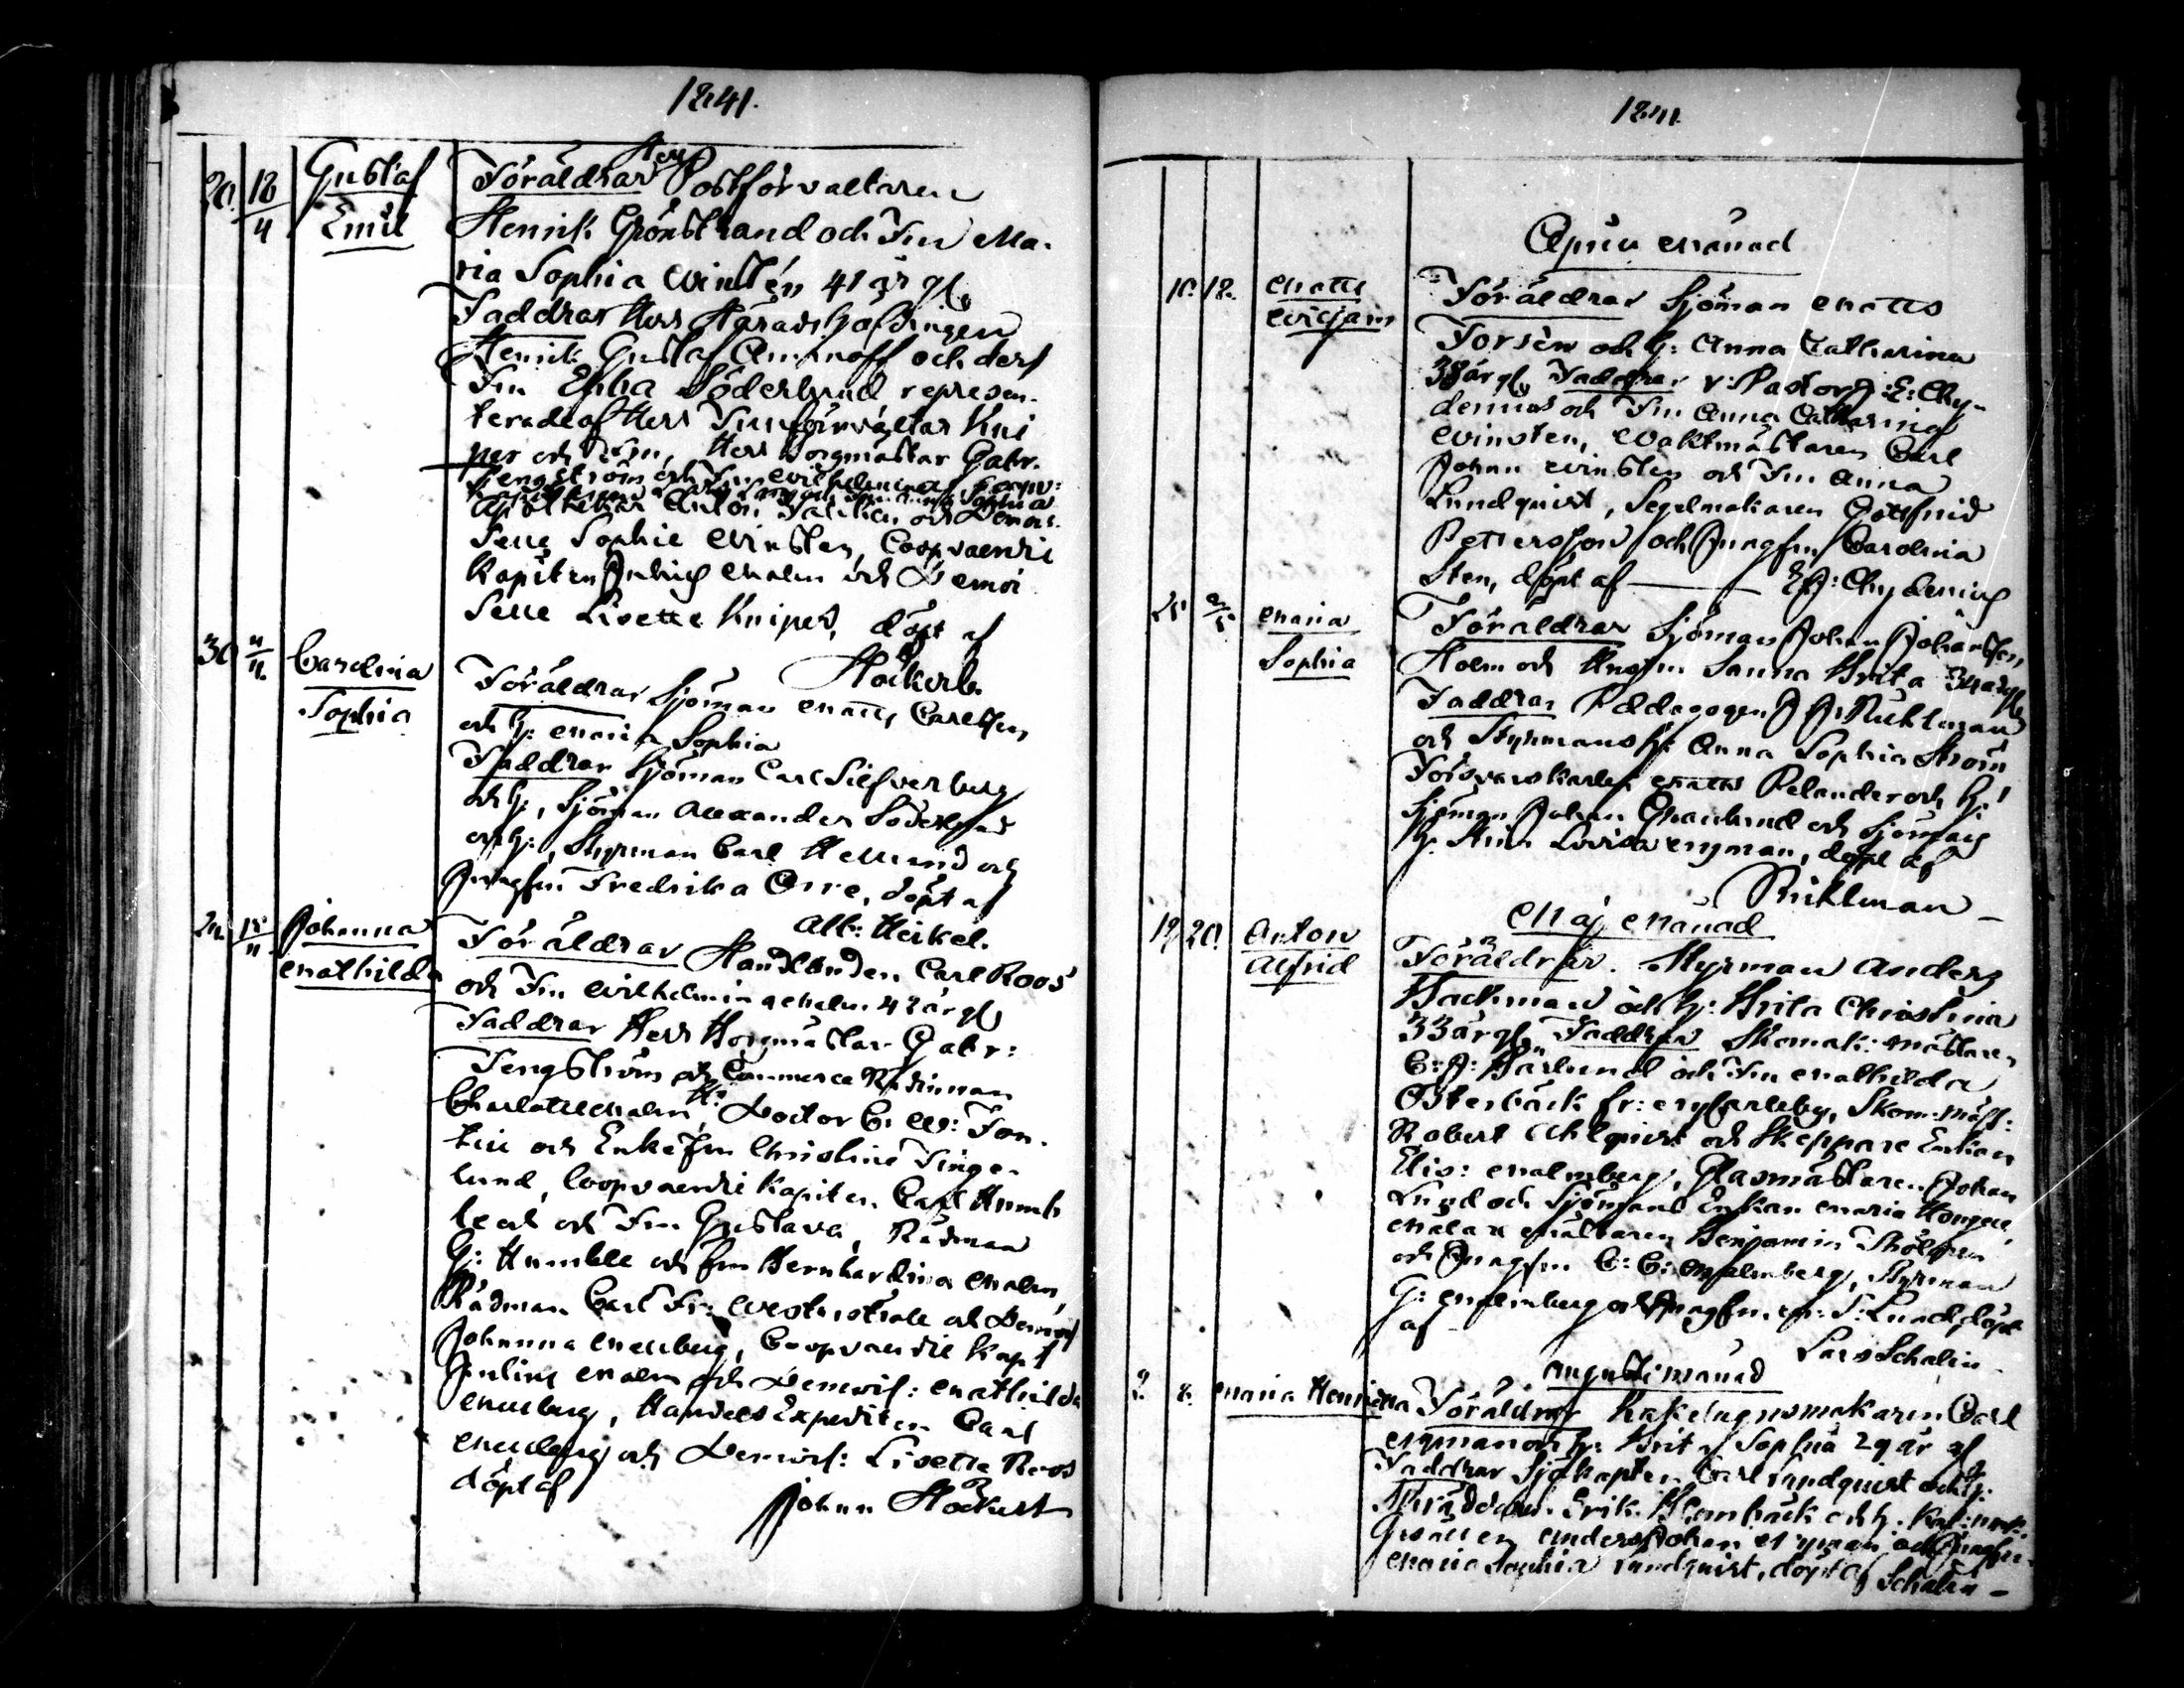 1841.
20. 18/4 Gustaf Emil
Föräldrar Herr Postförvaltaren
Henrik Grönstrand och Fru Ma-
ria Sophia Winstén 41 år gl.
Faddrar Herr Häradshöfdingen
Henrik Gustaf Aminoff och dess
Fru Ebba Söderlund represen-
terade af Herr Tullförvaltar Kni
per och Fru, Herr Borgmästar Gabr.
Tengström och Fru Wilhelmina
Apothekar Anton och Demoi-
selle Sophie Winsten, Coopvaerdie
Kapiten Julius Malm och Demoi
selle Lisette Kniper, döpt af
Höckert.
30. Carolina Sophia
Föräldrar Sjöman Matts Carlsson
och h: Maria Sophia
Faddrar Sjöman Carl Silfverberg
och h:, Sjöman Alexander Söderlund
och h:, Styrman Carl Hellund och
Jungfru Fredrika Orre, döpt af
Alb: Heikel.
Johanna Mathilda
Föräldrar Handlanden Carl Roos
och Fru Wilhelmina Malm 42 år gl.
Faddrar Herr Borgmästar Gabr:
Tengström och Commerce Rådinnan
Charlotte Malm, H: Doctor C: W: Fon-
tell och Enkefru Christine Tinge-
lund, Coopvaerdie Kapiten Carl Humb
le och Fru Gustava, Rådman
G: Humble och Fru Bernhardina Malm,
Rådman Carl Fr: och Demois
Johanna Mellberg, Coopvaerdie Kapt
Julius Malm och Demois: Mathilda
Mellberg, Handels Expediten Carl
Mellberg och Demois: Lisette Roos
döpt af
Johan Höckert
1841.
April Månad
10. 18. Matts Wiljam
Föräldrar Sjöman Matts
Forsén och h: Anna Catharina
38 år gl. Faddrar v: Pastor J: E: Chy-
denius och Fru Anna Catharina
Winsten, Waktmästaren Carl
Johan Winsten och Fru Anna
Lundquist, Segelmakaren Gottfrid
Pettersson och Jungfru Carolina
Sten, döpt af — E J: Chydenius
25 2/5 Maria Sophia
Föräldrar Sjöman Johan Johansson
Holm och Hustru Sanna Brita 34 år gl
Faddrar Pædagogen J J: Rühlman
och Styrmans h: Anna Sophia Ström
Försvarskarlen Matts Pelander och h:!
Sjöman Johan Granlund och Sjömans
h: Stina Lovisa Nyman, döpt af
Rühlman —
Maj Månad
19 20. Anton Alfrid
Föräldrar. Styrman Anders
Backman och h: Brita Christina
33 år gl. Faddrar Skomak: mästaren
C: A: Barlund och Fru Mathilda
Österbäck fr: Nykarleby, Skom: mäst:
Robert Ahlquist och Skeppare Enkan
Elis: Malmberg, Glasmästaren Johan
Lund och Sjömans Enkan Maria Hongell,
Målaren Benjamin
och Jungfru C: C: Malmberg, Styrman
G: Malmberg och Jungfru M: S: Lund, döpt
af Lars Schalin
Augusti månad
2 8. Maria Henrietta
Föräldrar Kakelugnsmakaren Carl
Nyman och h: Brita Sophia 29 år gl
Faddrar Sjökapten Carl Lundquist och h:
Erik Klemback och h:
Gesällen Anders Johan Nyman och Jungfru
Maria Sophia Lundquist, döpt af Schalin —